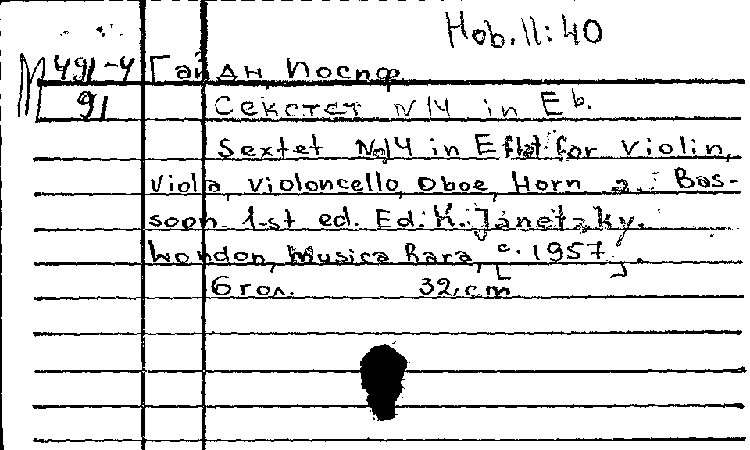 Hob. II:40
М 491-4 Гайдн, Йосиф
91 Секстет N 14 in Eb.
Sextet No14 in E flat for violin,
viola, violoncello, Oboe, Horn a. Bas-
soon 1-st ed. Ed. K. Janetzky.
London, Musica Rara, [c. 1957].
6 гол. 32 cm